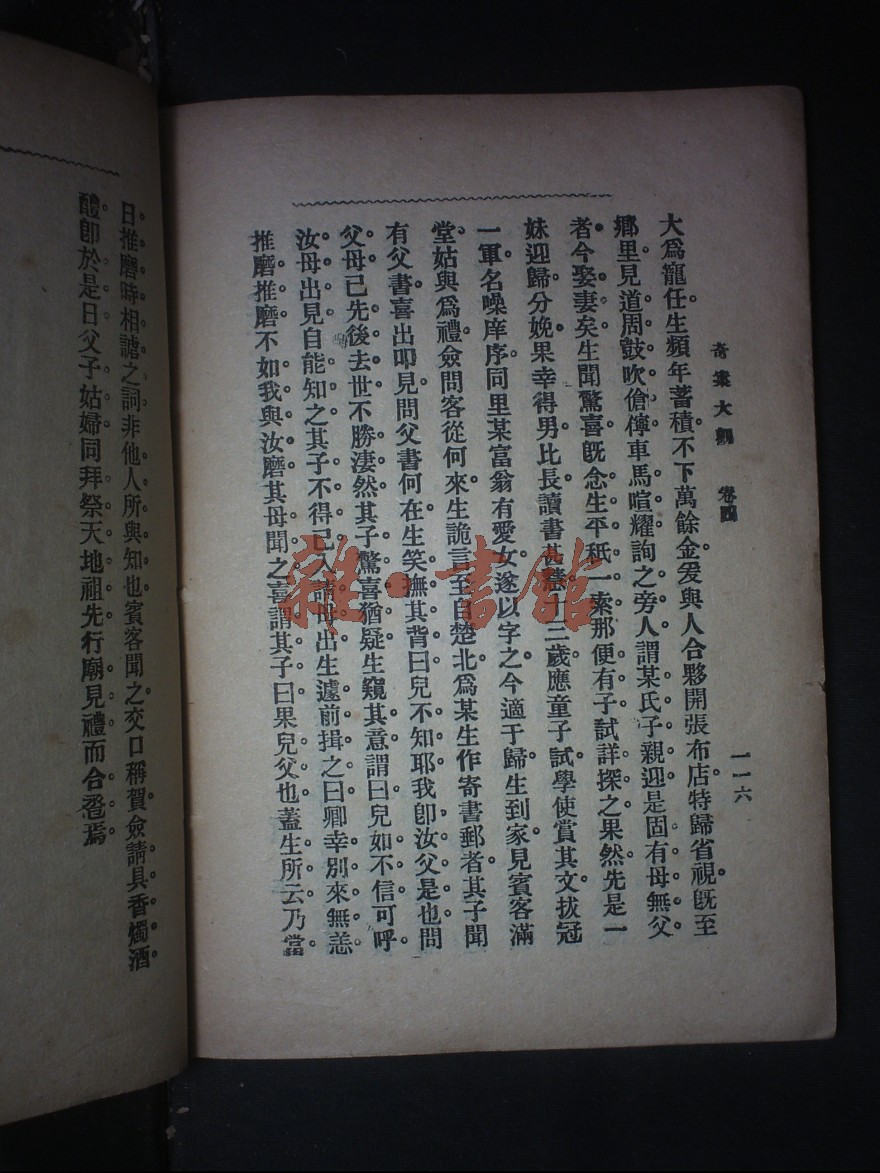 奇案大觀 卷四 一一六
大爲寵任生頻年蓄積不下萬餘金爰與人合夥開張布店特歸省視。旣至
鄉里見道周鼓吹傖儜車馬喧耀詢之旁人謂某氏子親迎是固有母無父。
者。今娶妻矣。生聞驚喜旣念生平秖一索那便有子試詳探之。果然。先是一
妹迎歸分娩果幸得男比長讀書甚十三歲應童子試學使賞其文拔冠
一軍。名噪庠序。同里某富翁有愛女遂以字之今適于歸生到家見賓客滿
堂。姑與爲禮僉問客從何來。生詭言至自楚北爲某生作寄書郵者。其子聞
有父書喜出叩見問父書何在生笑撫其背曰兒不知耶我卽汝父是也。問
父母已先後去世不勝淒然。其子驚喜猶疑。生窺其意。謂曰兒如不信。可呼。
汝母出見自能知之其子不得已入請母出生遽前揖之曰卿幸別來無恙。
推磨推磨不如我與汝磨其母聞之喜謂其子曰果兒父也。蓋生所云乃當。
日推磨時相謔之詞。非他人所與知也。賓客聞之交口稱賀僉請具香燭酒
醴卽於是日父子姑婦同拜祭天地祖先行廟見禮而合卺焉。
雜·書館